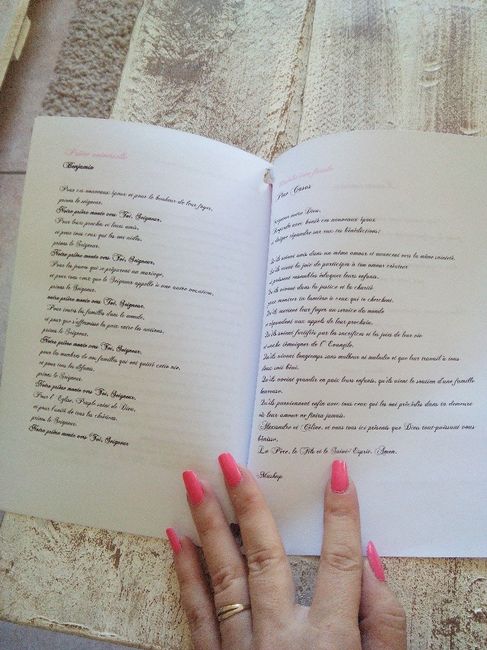 Prière universelle
Benjamin
Pour ces nouveaux époux et pour le bonheur de leur foyer,
prions le seigneur.
Notre prière monte vers Toi, Seigneur.
Pour leurs proches et leurs amis,
et pour tous ceux qui les ont aidés,
prions le Seigneur.
Notre prière monte vers Toi, Seigneur.
Pour les jeunes qui se préparent au mariage,
et pour tous ceux que le Seigneur appelle à une autre vocation,
prions le seigneur.
notre prière monte vers Toi, Seigneur.
Pour toutes les familles dans le monde,
et pour que s'affermisse la paix entre les nations,
prions le Seigneur.
Notre prière monte vers Toi, Seigneur.
pour les membres de nos familles qui ont quitté cette vie,
et pour tous les défunts,
prions le Seigneur.
Notre prière monte vers Toi, Seigneur.
Pour l'Eglise, Peuple saint de Dieu,
et pour l'unité de tous les chrétiens,
prions le Seigneur.
Notre prière monte vers Toi, Seigneur
Bénédiction finale
Par
Seigneur notre Dieu,
Regarde avec bonté ces nouveaux époux
et daigne répandre sur eux tes bénédictions:
Qu'ils soient unis dans un même amour et avancent vers la même sainteté.
Qu'ils aient la joie de participer à ton amour créateur
et puissent ensembles éduquer leurs enfants.
Qu'ils vivent dans la justice et la charité
pour montrer ta lumière à ceux qui te cherchent.
Qu'ils mettent leur foyer au service du monde
et répondent aux appels de leur prochain.
Qu'ils soient fortifiés par les sacrifices et les joies de leur vie
et sache témoigner de l'Evangile.
Qu'ils vivent longtemps sans malheur ni maladie et que leur travail à tous
deux soit béni.
Qu'ils voient grandir en paix leurs enfants, qu'ils aient le soutien d'une famille
heureuse.
Qu'ils parviennent enfin avec tous ceux qui les ont précédés dans ta demeure
où leur amour ne finira jamais.
Alexandre et Céline, et vous tous ici présents que Dieu tout-puissant vous
bénisse,
Le Père, le Fils et le Saint-Esprit. Amen.